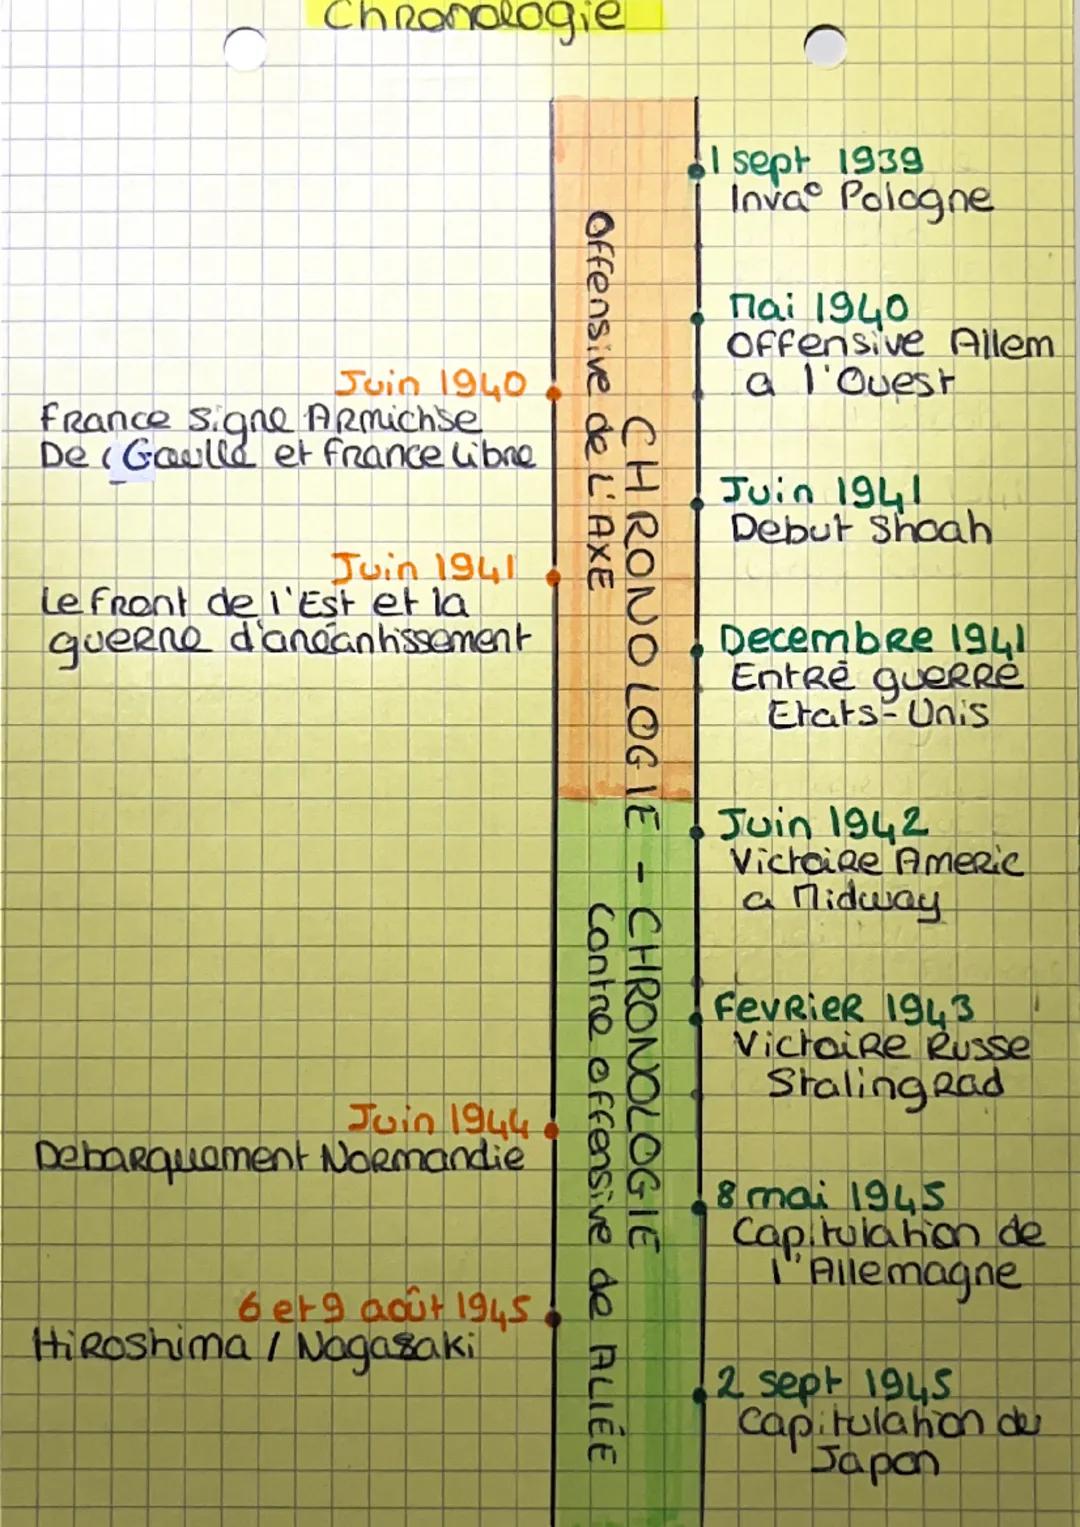 Chronologie
1 sept 1939
Inva° Pologne
Mai 1940
Offensive Allem
a l'Ouest
Juin 1940
France signe Armichse
De Gaulle et france Libre
Juin 1941
Debut Shoah
Juin 1941
Le front de l'Est et la
guerre d'anéantissement
Decembre 1941
Entré guerre
Etats-Unis
Offensive de L'AXE
CHRONOLOGIE - CHRONOLOGIE
Contre offensive de ALIÉE
Juin 1942
Victoire Americ
a Midway
Fevrier 1943
Victoire Russe
Stalingrad
Juin 1944
Debarquement Normandie
8 mai 1945
Capitulation de
l'Allemagne
6 et 9 août 1945
Hiroshima / Nagasaki
2 sept 1945
Capitulation du
Japon